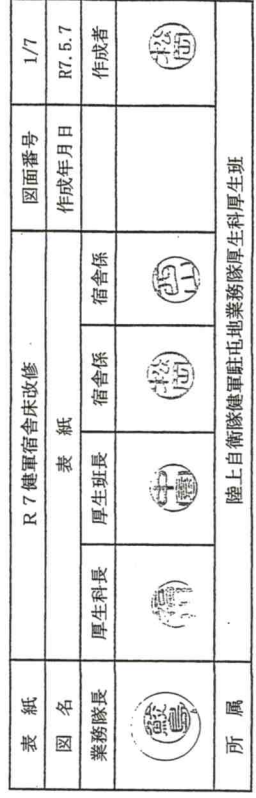 表紙 R7健軍宿舎床改修 図面番号 1/7
図名 表紙 作成年月日 R7.5.7
業務隊長 厚生科長 厚生班長 宿舎係 宿舎係 作成者
松岡 松岡
所属 陸上自衛隊健軍駐屯地業務隊厚生科厚生班